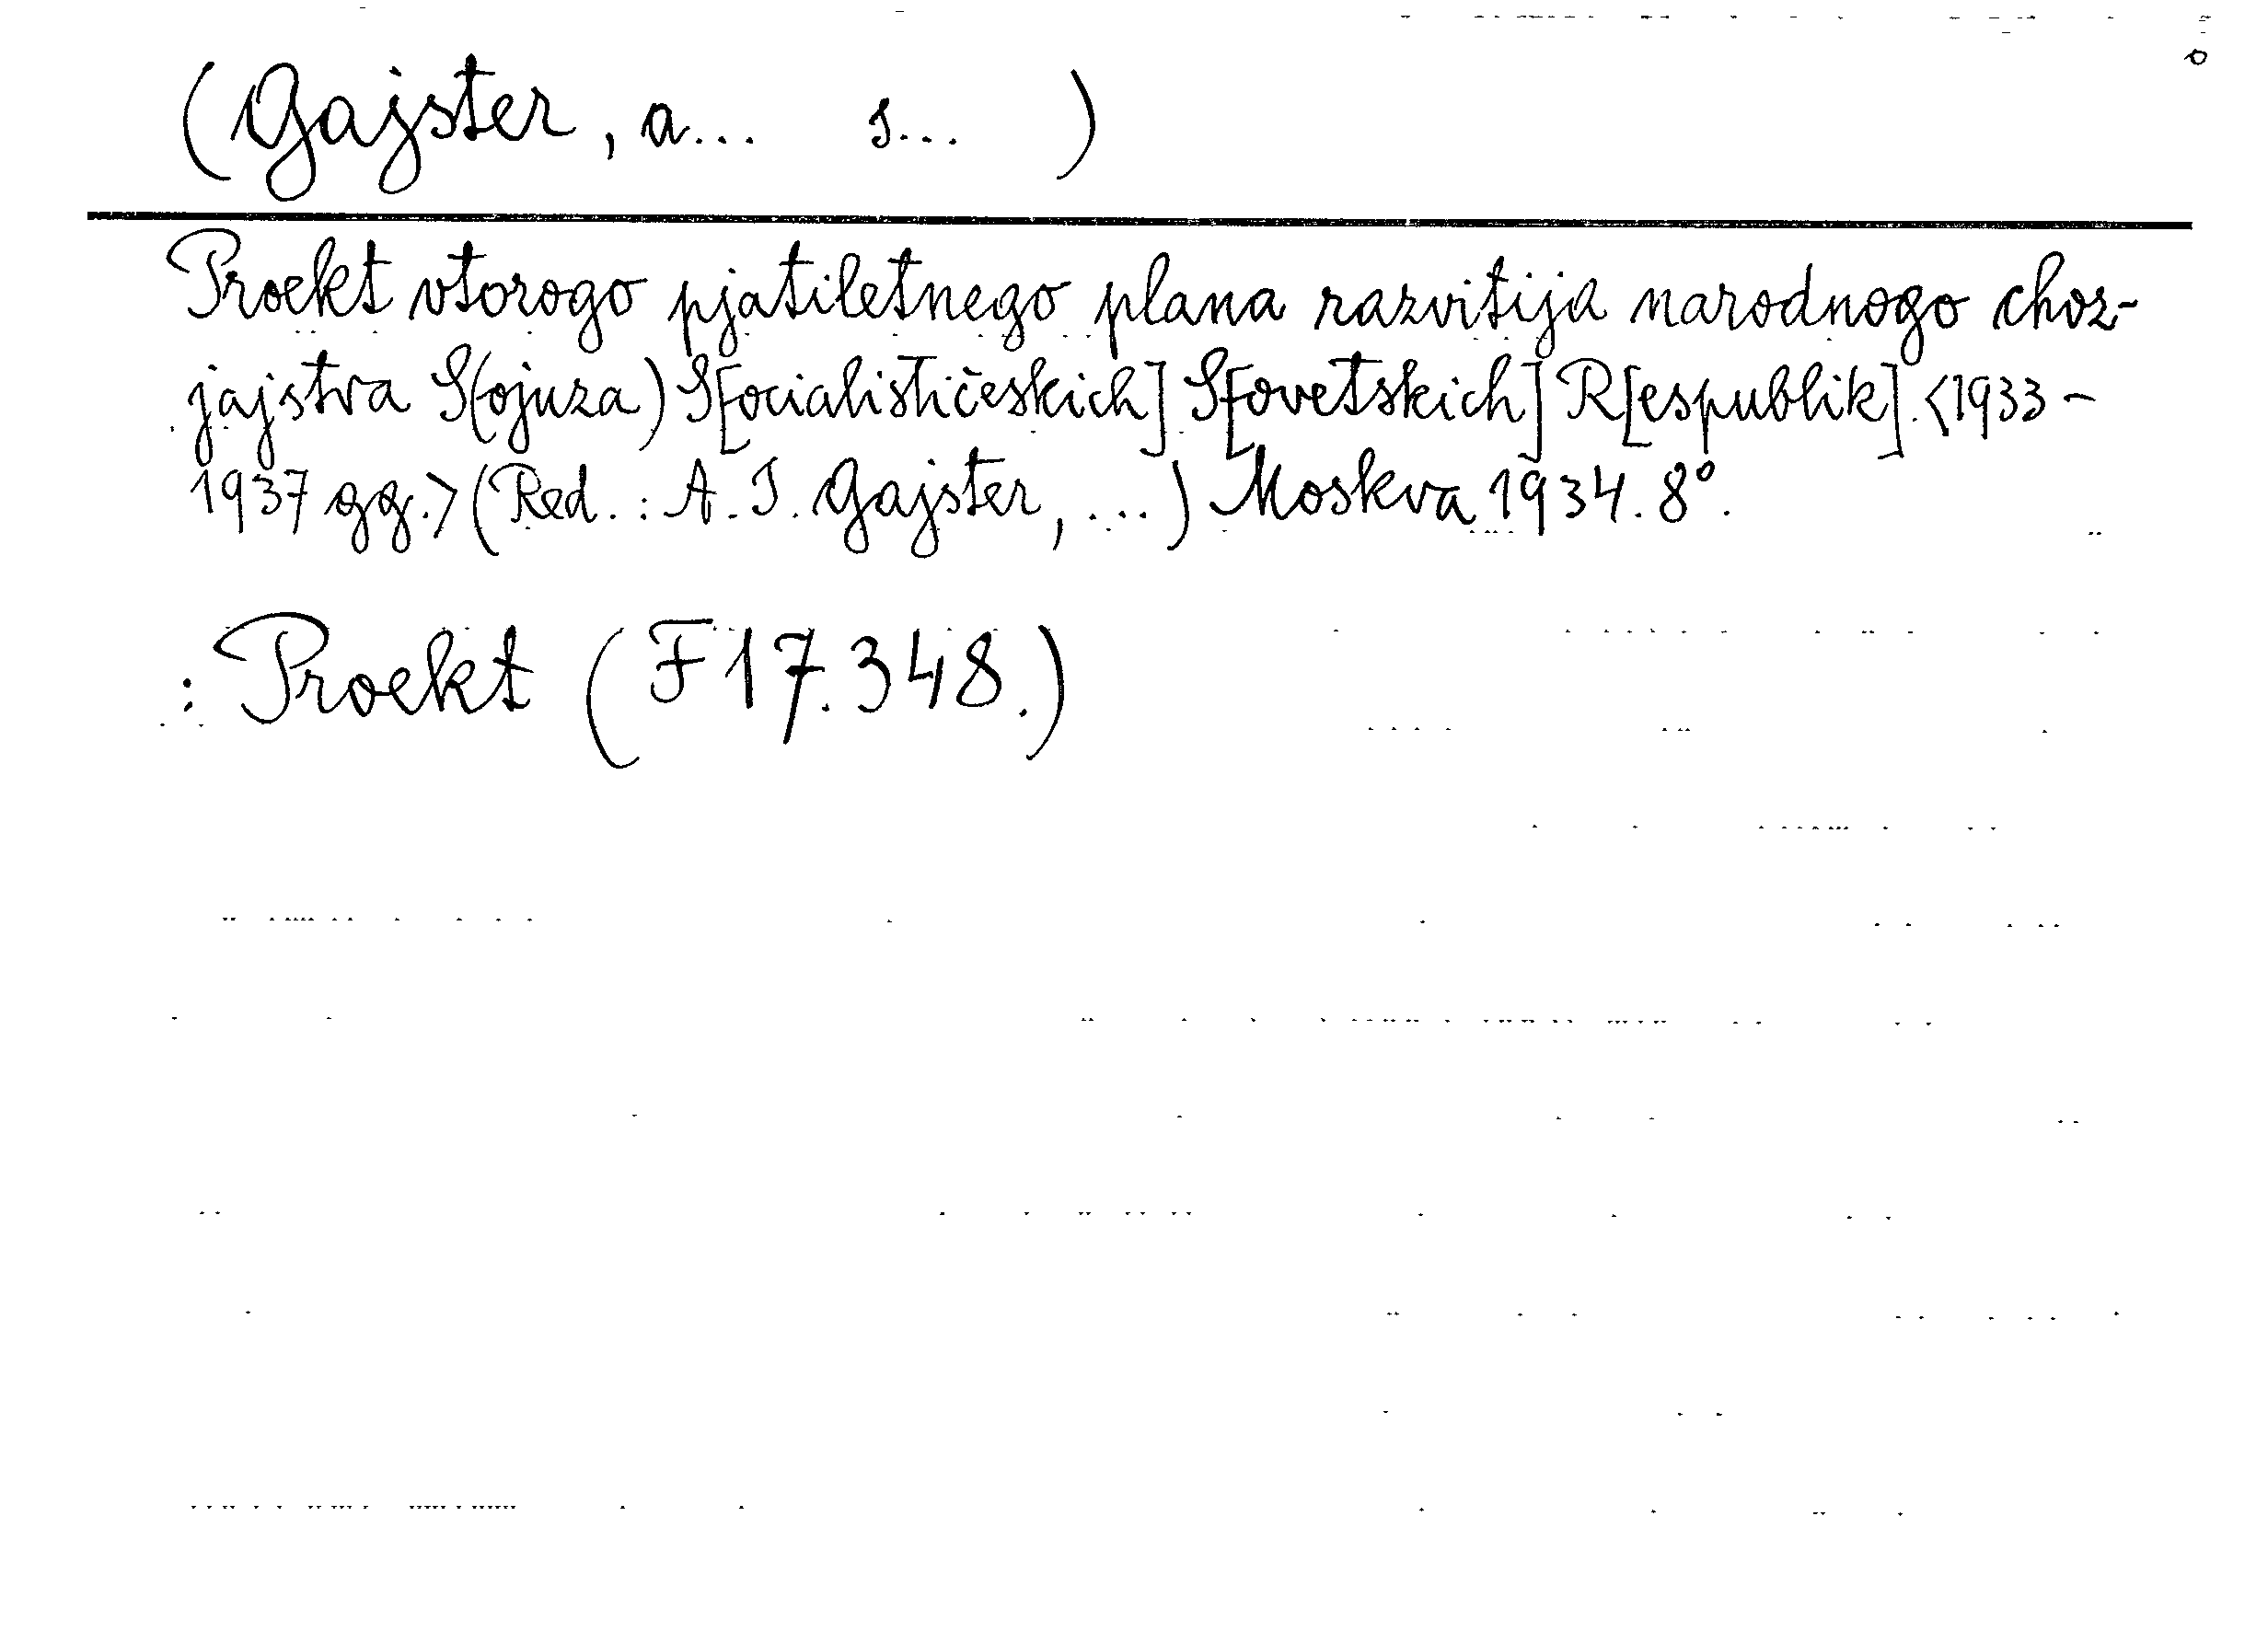 (Gajster, A... I... )
Proekt vtorogo pjatiletnego plana razvitija narodnogo choz-
jajstva S(ojuza) S[ocialističeskich] S[ovetskich] R[espublik]. <1933-
1937 gg.> (Red.: A. I. Gajster, ...) Moskva 1934. 8°.
: Proekt (F 17.348.)